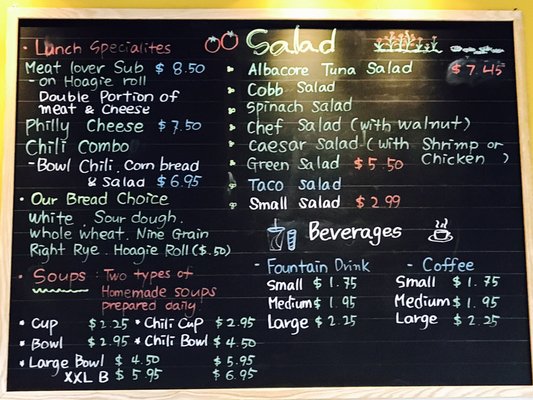 • Lunch Specialites
Meat lover Sub $ 8.50
- on Hoagie roll
Double Portion of
meat & Cheese
Philly Cheese $ 7.50
Chili Combo
- Bowl Chili . Corn bread
& Salad $ 6.95
• Our Bread Choice
White . Sour dough .
Whole Wheat . Nine Grain
Right Rye . Hoagie Roll ($.50)
• Soups : Two types of
Homemade soups
prepared daily!
* Cup $ 2.25 * Chili Cup $ 2.95
* Bowl $ 2.95 * Chili Bowl $ 4.50
* Large Bowl $ 4.50 $ 5.95
XXL B $ 5.95 $ 6.95
Salad
Albacore Tuna Salad $ 7.45
Cobb Salad
Spinach Salad
Chef Salad (with walnut)
Caesar Salad (with Shrimp or
Chicken )
Green Salad $ 5.50
Taco Salad
Small Salad $ 2.99
Beverages
- Fountain Drink
Small $ 1.75
Medium $ 1.95
Large $ 2.25
- Coffee
Small $ 1.75
Medium $ 1.95
Large $ 2.25